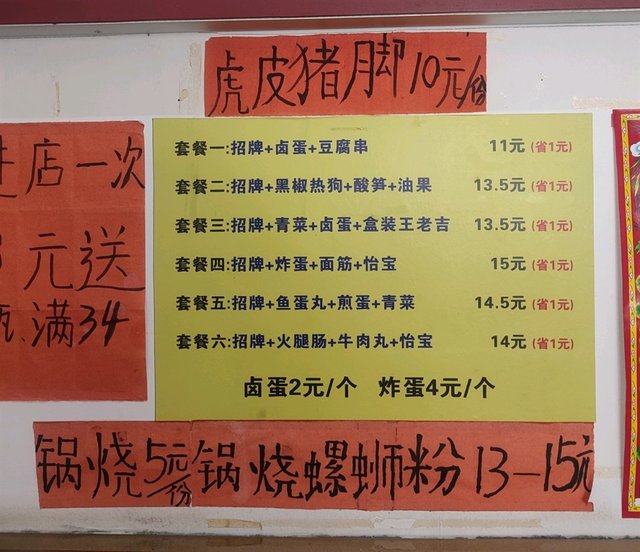 虎皮猪脚10元/份
进店一次
元送
满34
套餐一:招牌+卤蛋+豆腐串 11元 (省1元)
套餐二:招牌+黑椒热狗+酸笋+油果 13.5元 (省1元)
套餐三:招牌+青菜+卤蛋+盒装王老吉 13.5元 (省1元)
套餐四:招牌+炸蛋+面筋+怡宝 15元 (省1元)
套餐五:招牌+鱼蛋丸+煎蛋+青菜 14.5元 (省1元)
套餐六:招牌+火腿肠+牛肉丸+怡宝 14元 (省1元)
卤蛋2元/个 炸蛋4元/个
锅烧5元/份 锅烧螺蛳粉13-15元